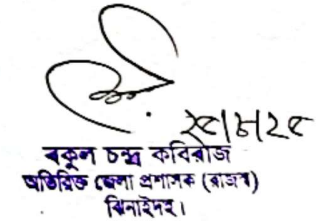 বকুল চন্দ্র কবিরাজ
অতিরিক্ত জেলা প্রশাসক (রাজস্ব)
ঝিনাইদহ।